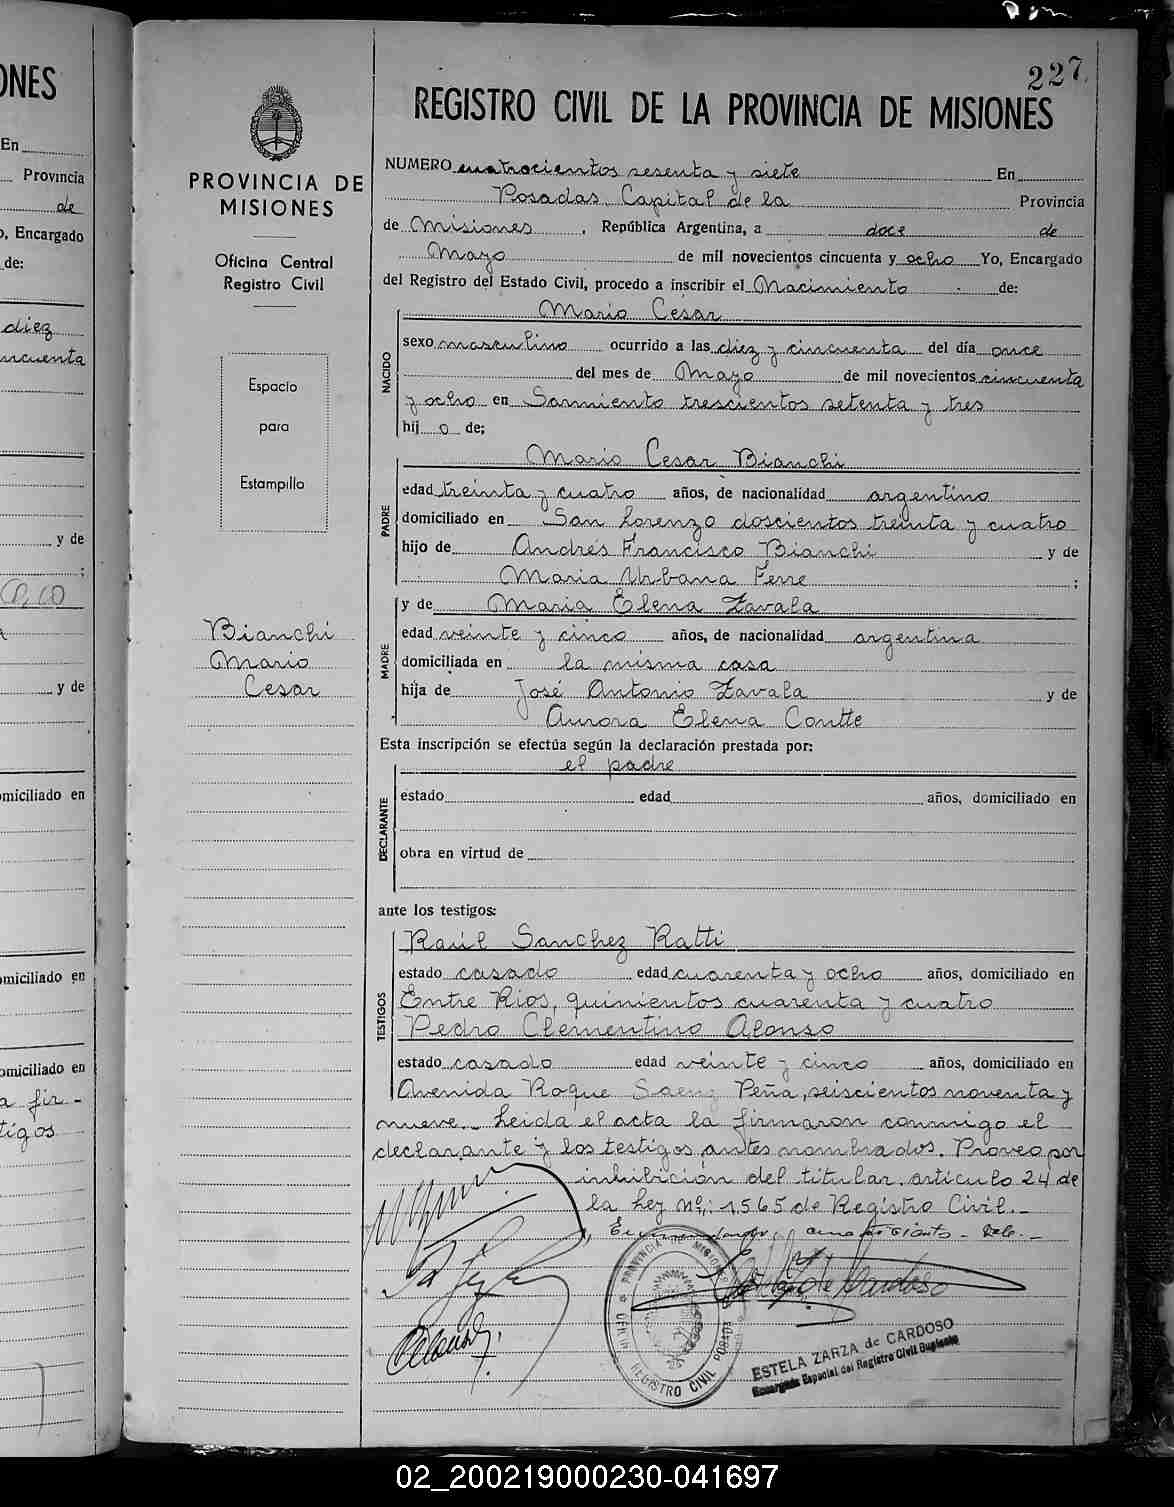 ONES
En
Provincia
de
o, Encargado
de:
diez
ncuenta
y de
;
y de
omiciliado en
omiciliado en
omiciliado en
a fir-
tigos
227
PROVINCIA DE
MISIONES
Oficina Central
Registro Civil
Espacio
para
Estampilla
Bianchi
Mario
Cesar
REGISTRO CIVIL DE LA PROVINCIA DE MISIONES
NUMERO cuatrocientos sesenta y siete En
Posadas, Capital de la Provincia
de Misiones, República Argentina, a doce de
Mayo de mil novecientos cincuenta y ocho Yo, Encargado
del Registro del Estado Civil, procedo a inscribir el Nacimiento de:
NACIDO
Mario César
sexo masculino ocurrido a las diez y cincuenta del día once
del mes de Mayo de mil novecientos cincuenta
y ocho en Sarmiento trescientos setenta y tres
hijo de;
PADRE
Mario Cesar Bianchi
edad treinta y cuatro años, de nacionalidad argentino
domiciliado en San Lorenzo doscientos treinta y cuatro
hijo de Andrés Francisco Bianchi y de
Maria Urbana Ferre ;
MADRE
y de Maria Elena Zavala
edad veinte y cinco años, de nacionalidad argentina
domiciliada en la misma casa
hija de José Antonio Zavala y de
Aurora Elena Coutte
Esta inscripción se efectúa según la declaración prestada por:
DECLARANTE
el padre
estado edad años, domiciliado en
obra en virtud de
ante los testigos:
TESTIGOS
Raúl Sanchez Ratti
estado casado edad cuarenta y ocho años, domiciliado en
Entre Rios, quinientos cuarenta y cuatro
Pedro Clementino Alonso
estado casado edad veinte y cinco años, domiciliado en
Avenida Roque Saenz Peña, seiscientos noventa y
nueve.- Leida el acta la firmaron conmigo el
declarante y los testigos antes nombrados. Proveo por
inhibición del titular. artículo 24 de
la Ley Nº: 1.565 de Registro Civil.-
PROVINCIA DE MISIONES
REGISTRO CIVIL POSADAS
ESTELA ZARZA de CARDOSO
Encargada Especial del Registro Civil Suplente
02_200219000230-041697